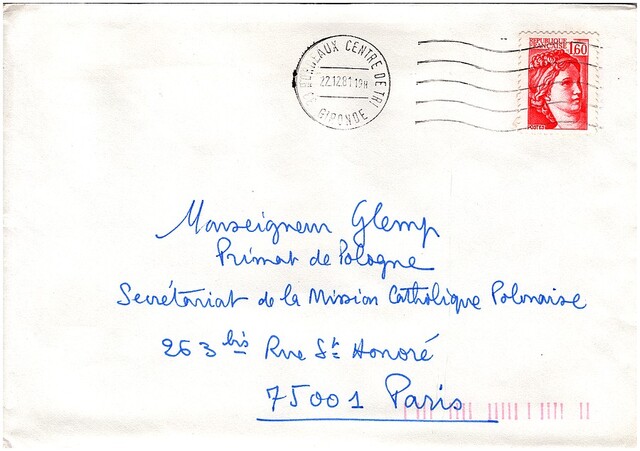 33 BORDEAUX CENTRE DE TRI
22.12.81 19H
GIRONDE
REPUBLIQUE
FRANCAISE 1,60
POSTES
Monseigneur Glemp
Primat de Pologne
Secrétariat de la Mission Catholique Polonaise
263 bis Rue St Honoré
75001 Paris